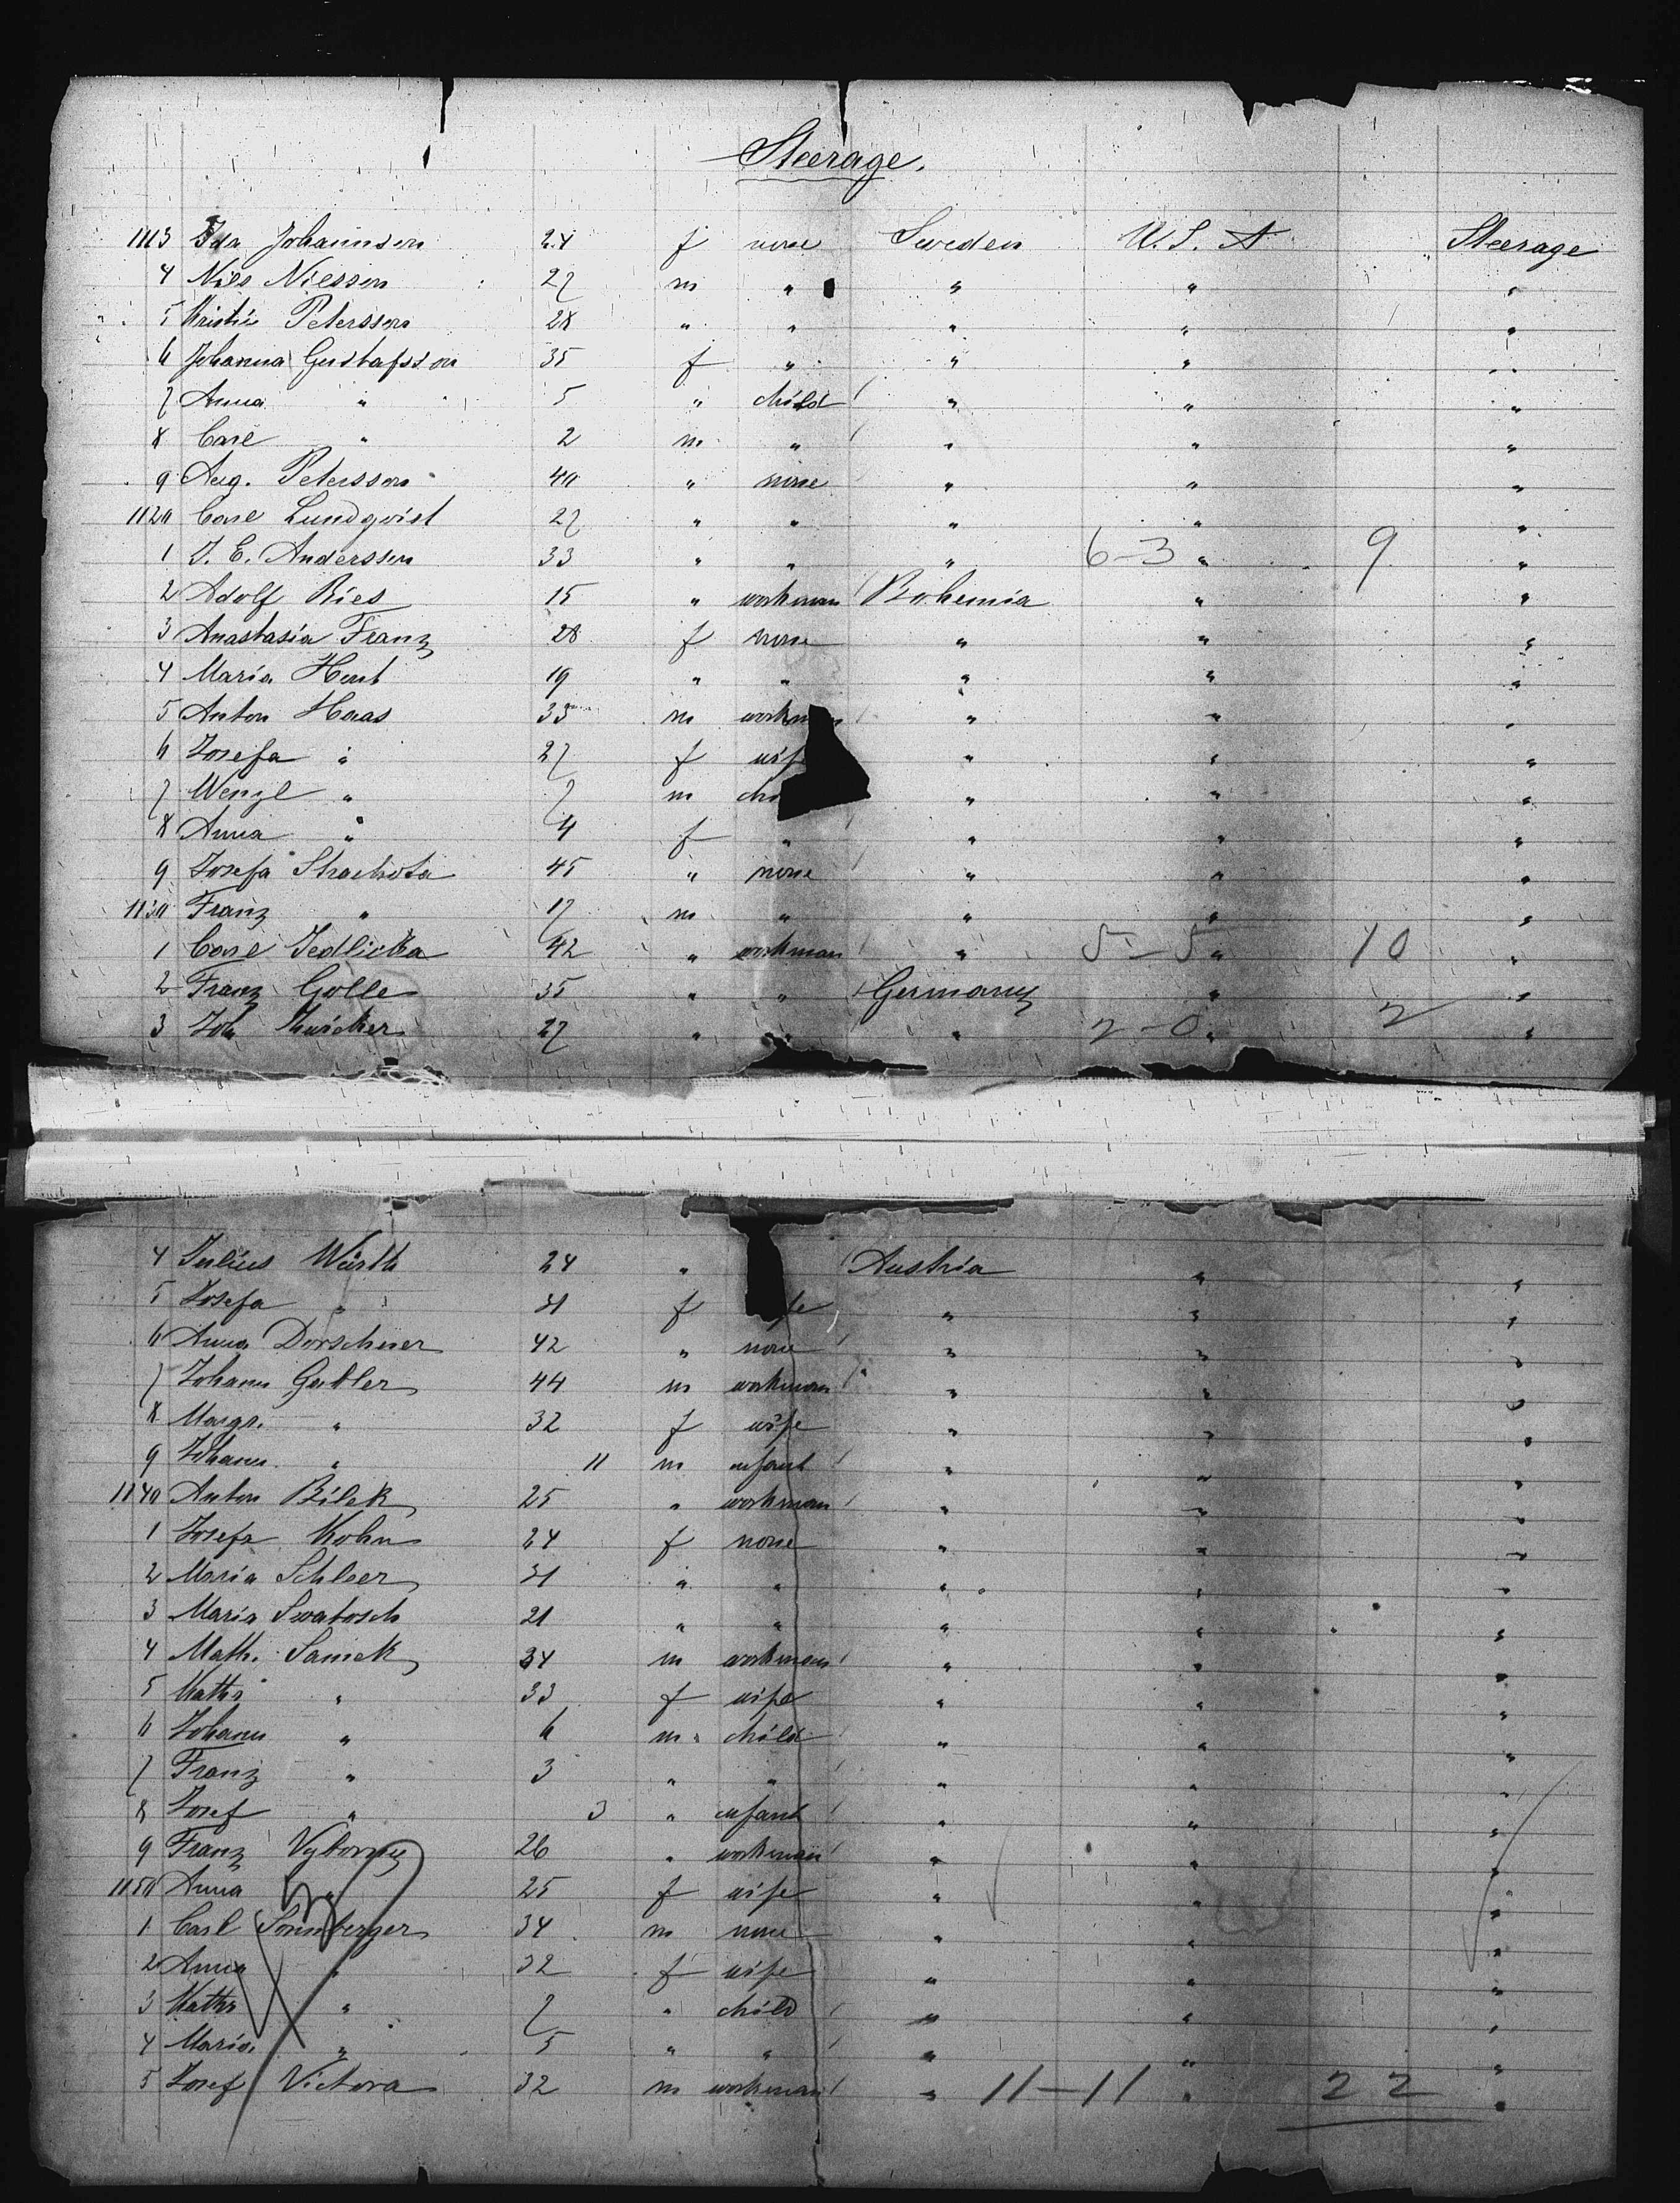 Steerage.
1113 Ida Johannsen 24 f none Sweden U.S.A Steerage
4 Nils Nilsson 27 m " " " "
5 Kristin Petersson 28 " " " " "
6 Johanna Gustafsson 35 f " " " "
7 Anna " 5 " child " " "
8 Carl " 2 m " " " "
9 Aug. Petersson 40 " none " " "
1120 Carl Lundqvist 27 " " " " "
1 J. E. Andersson 33 " " " 6-3 " 9 "
2 Adolf Ries 15 " workman Bohemia " "
3 Anastasia Franz 28 f none " " "
4 Maria 19 " " " " "
5 Anton Haas 33 m workm " " "
6 Josefa " 27 f wif " " "
7 Wenzl " 7 m chi " " "
8 Anna " 4 f " " " "
9 Josefa Strachota 45 " none " " "
1130 Franz " 17 m " " " "
1 Carl Jedlicka 42 " workman " 5-5 " 10 "
2 Franz Golle 35 " " Germany " "
3 Joh 27 " " " 2-0 " 2 "
4 Julius Würth 24 " Austria " "
5 Josefa " 21 f fe " " "
6 Anna Dorschner 42 " none " " "
7 Johann Gabler 44 m workman " " "
8 Margr. " 32 f wife " " "
9 Johann " 11 m infant " " "
1140 Anton Bilek 25 " workman " " "
1 Josefa Kohn 24 f none " " "
2 Maria Schleer 21 " " " " "
3 Maria Swatosch 21 " " " " "
4 Math. Samek 34 m workman " " "
5 Kathr " 33 f wife " " "
6 Johann " 6 m child " " "
7 Franz " 3 " " " " "
8 Josef " 3 " infant " " "
9 Franz Vyborny 26 " workman " " "
1150 Anna " 25 f wife " " "
1 Carl Sonnberger 34 m none " " "
2 Anna " 32 f wife " " "
3 Kathr " 7 " child " " "
4 Maria " 5 " " " " "
5 Josef Victora 32 m workman " 11-11 " 22 "